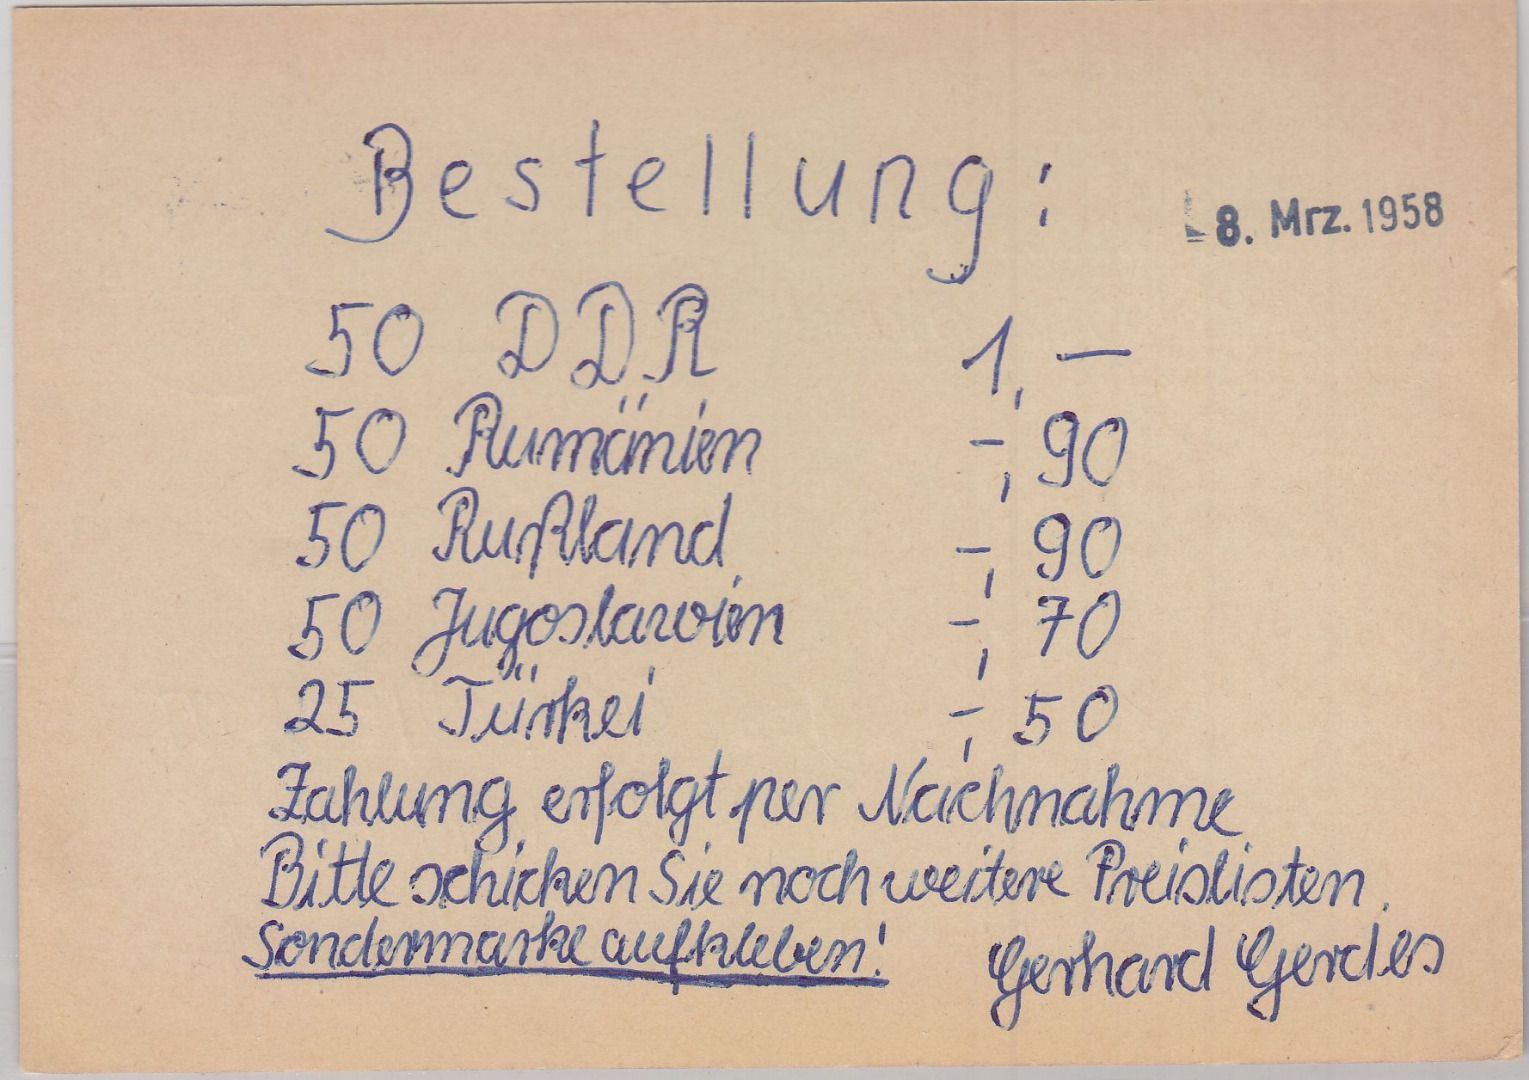 Bestellung:
8. Mrz. 1958
50 DDR 1,—
50 Rumänien -,90
50 Rußland -,90
50 Jugoslawien -,70
25 Türkei -,50
Zahlung erfolgt per Nachnahme
Bitte schicken Sie noch weitere Preislisten.
Sondermarke aufkleben!
Gerhard Gerdes